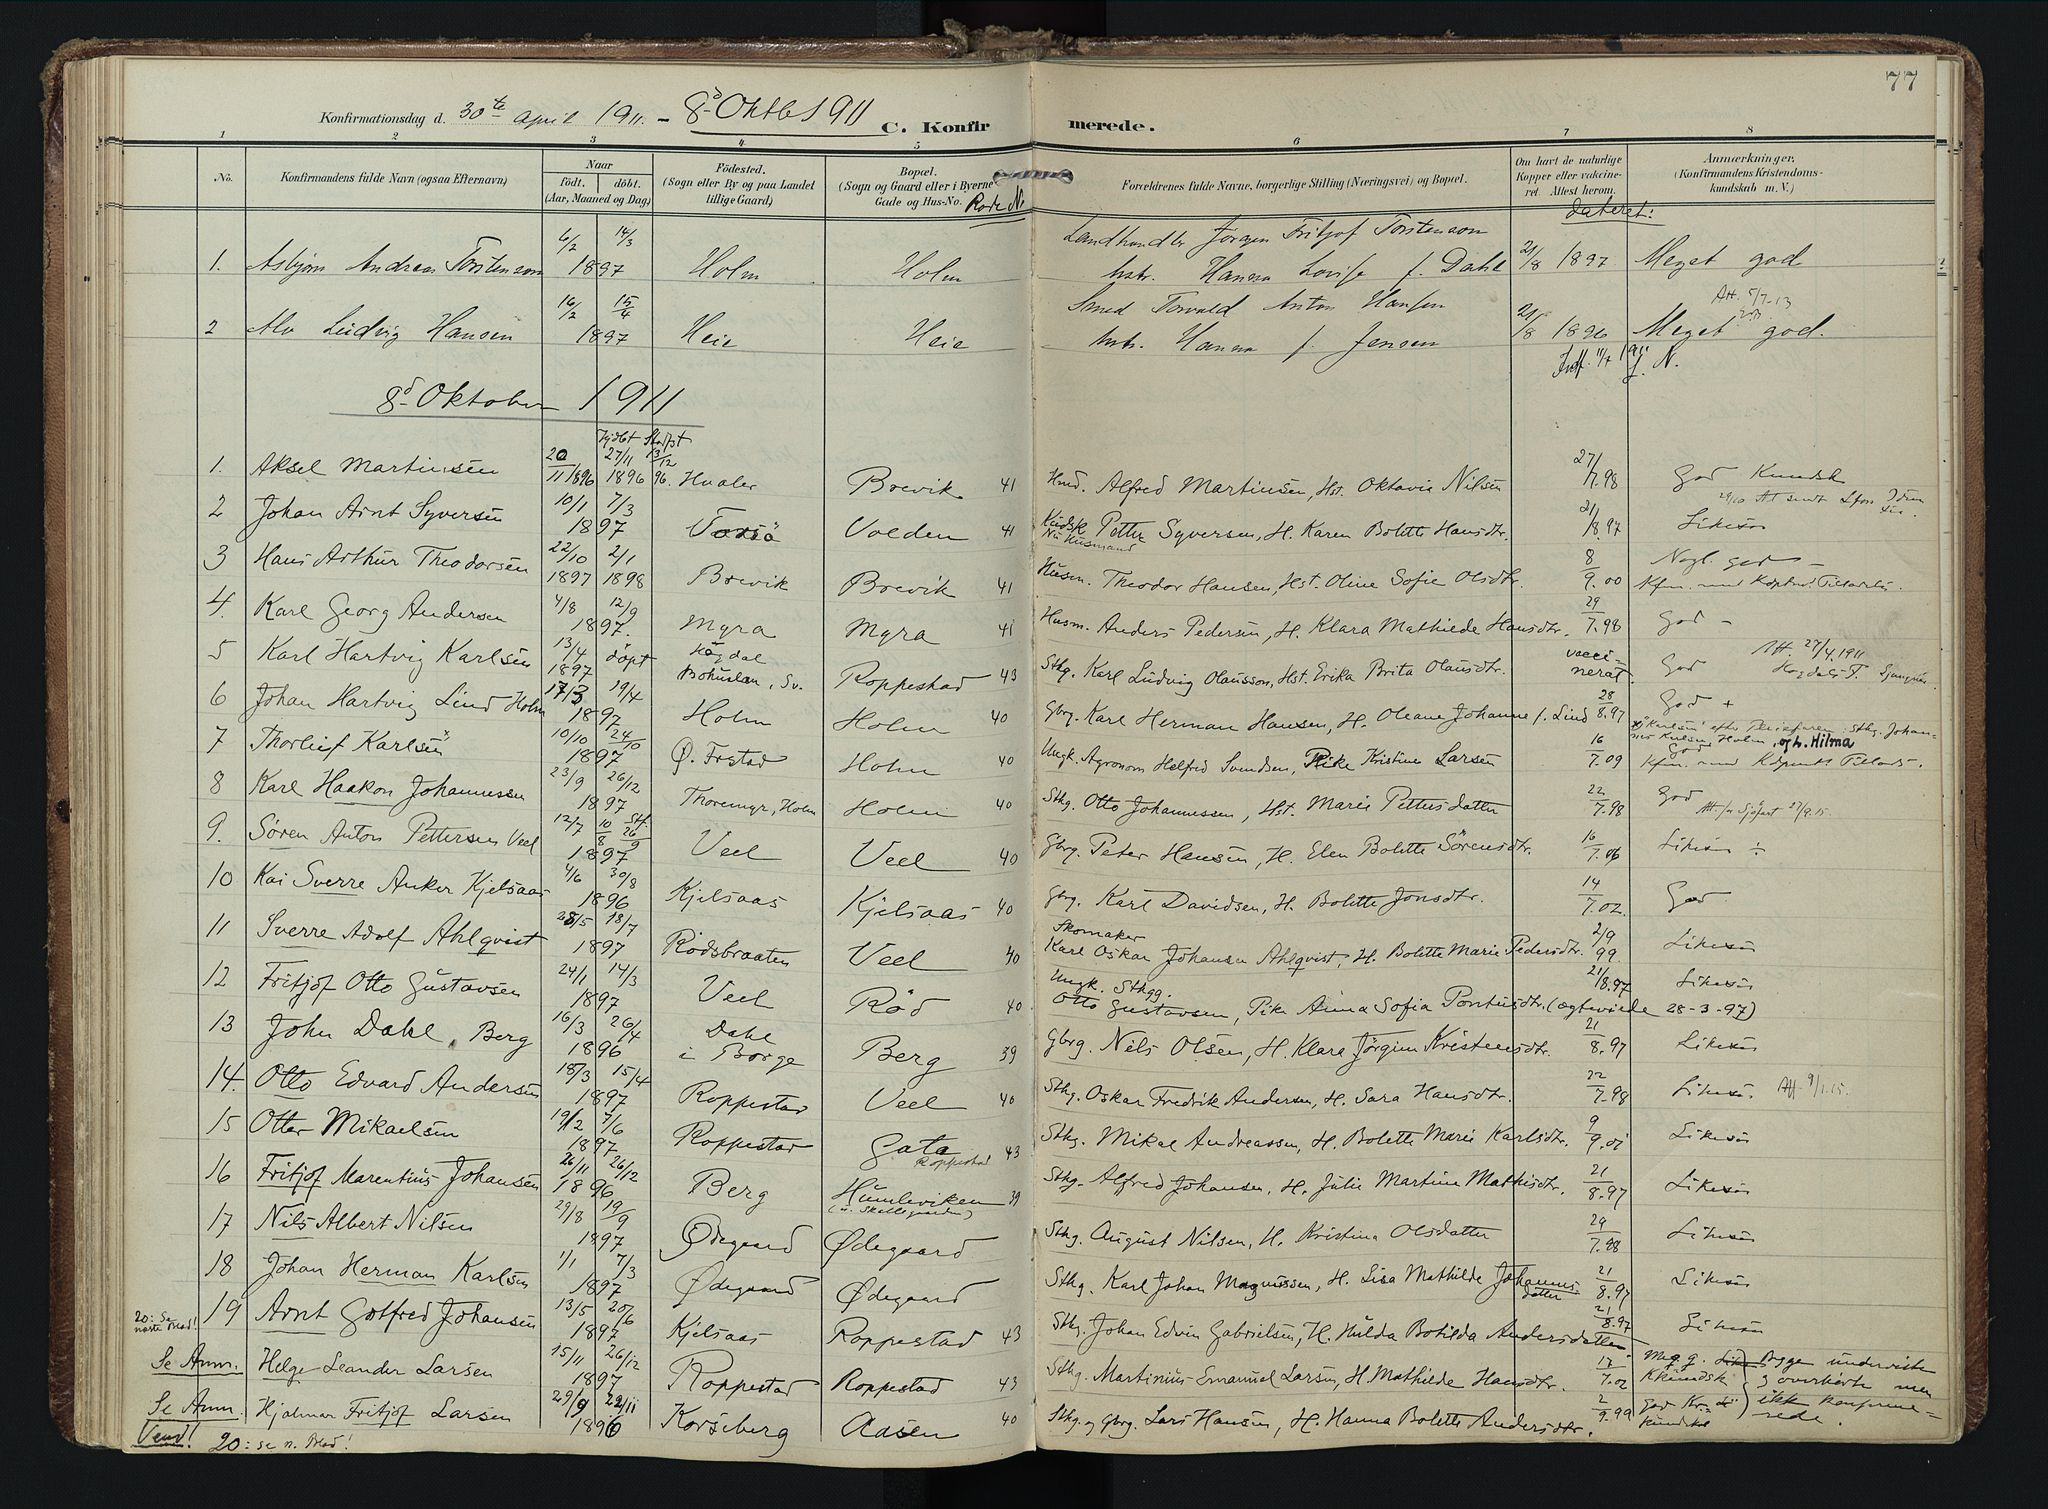 77
Konfirmationsdag d. 30te april 1911. - 8d Oktb 1911
C. Konfirmerede.
1 2 3 4 5 6 7 8
No.
Konfirmandens fulde Navn (ogsaa Efternavn)
Naar
födt. döbt.
(Aar, Maaned og Dag)
Födested.
(Sogn eller By og paa Landet
tillige Gaard)
Bopæl.
(Sogn og Gaard eller i Byerne
Gade og Hus-No.
Rode No
Forældrenes fulde Navne, borgerlige Stilling (Næringsvei) og Bopæl.
Om havt de naturlige
Kopper eller vaccine-
ret Attest herom.
dateret:
Anmærkninger.
(Konfirmandens Kristendoms-
kundskab m. V.)
1. Asbjørn Andreas Torstenson 6/2 14/3 1897 Holm Holm Landhandler Jørgen Fritjof Torstenson
hstr. Hanna Lovise f. Dahl 21/8 1897 Meget god
2 Alv Ludvig Hansen 16/2 15/4 1897 Heie Heie Smed Torvald Anton Hansen
hstr. Hanna f. Jensen 21/8 1896 Meget god. Att. 5/7-13
8d Oktober 1911
1. Aksel Martinsen 20/11 1896 27/11 1896 13/12 96. Hvaler Brevik 41 Alfred Martinsen, Hst. Oktavie Nilsen 27/7.98 God Kundsk
2 Johan Arnt Syversen 10/1 7/3 1897 Torsö Volden 41 Kudsk Petter Syversen, H. Karen Bolette Hansdtr. 21/8.97 Likesaa
Nu Husmand
3 Hans Arthur Theodorsen 22/10 1897 2/1 1898 Brevik Brevik 41 Husm. Theodor Hansen, Hst. Oline Sofie Olsdtr. 8/9.00 Nogl. god -
4. Karl Georg Andersen 4/8 12/9 1897. Myra Myra 41 Husm. Anders Pedersen, H. Klara Mathilde Hansdtr. 29/7.98 God -
5 Karl Hartvig Karlsen 13/4 1897 döpt Högdal Bohuslen, Sv. Roppestad 43 Sthg. Karl Ludvig Olausson, Hst. Erika Brita Olausdtr. vacci-nerat. God Att. 27/4.1911
6 Johan Hartvig Lind Holm 17/3 19/4 1897 Holm Holm 40 Gbrg. Karl Herman Hansen, H. Oleane Johanne f. Lind 28/8.97 God +
7 Thorleif Karlsen 10/10 24/10 1897 Ø. Frstad Holm 40 Ungk. Agronom Helfred Svendsen, Pike Kristine Larsen 16/7.09 God
og h. Hilma
8 Karl Haakon Johannessen 23/9 26/12 1897 Thoremyr, Holm Holm 40 Sthg. Otto Johannessen, Hst. Marie Pettersdatter 22/7.98 God
9. Søren Anton Pettersen Veel 12/7 10/8 26/9 1897 Veel Veel 40 Gbrg. Peter Hansen, H. Elen Bolette Sörensdtr. 16/7.06 Likesaa
10 Kai Sverre Anker Kjelsaas 4/6 30/8 1896 Kjelsaas Kjelsaas 40 Gbrg. Karl Davidsen, H. Bolette Jonsdtr. 14/7.02. God
11 Sverre Adolf Ahlqvist 28/5 18/7 1897 Rödsbraaten Veel 40 Skomaker
Karl Oskar Johansen Ahlqvist, H. Bolette Marie Pedersdtr. 2/9 99 Likesaa
12 Fritjof Otto Gustavsen 24/1 14/3 1897 Veel Röd 40 Ungk. Sthgg.
Otto Gustavsen, Pike Anna Sofia Pontusdtr. (ægteviede 28-3-97) 21/8.97 Likesaa
13 John Dahl, Berg 16/3 26/4 1896 Dahl i Borge Berg 39 Gbrg. Nils Olsen, H. Klara Jörgine Kristensdtr. 21/8.97 Likesaa
14. Otto Edvard Andersen 18/3 15/4 1897 Roppestad Veel 40 Sthg. Oskar Fredrik Andersen, H. Sara Hansdtr. 22/7.98 Likesaa Att. 9/1.15.
15 Otter Mikaelsen 19/2 7/6 1897 Roppestad Gata Roppestad 43 Sthg. Mikal Andreassen, H. Bolette Marie Karlsdtr. 9/9.01 Likesaa
16 Fritjof Marentius Johansen 26/11 26/12 1896 Berg Humleviken 39 Sthg. Alfred Johansen, H. Julie Martine Mathisdtr. 21/8.97 Likesaa
17 Nils Albert Nilsen 29/8 19/9 1897 Ødegaard Ødegaard Sthg. August Nilsen, H. Kristina Olsdatter 29/7.98 Likesaa
18 Johan Herman Karlsen 1/1 7/3 1897 Ødegaard Ødegaard Sthg. Karl Johan Magnussen, H. Lisa Mathilde Johannesdatter 21/8.97 Likesaa
20: Se næste Blad!
19 Arnt Gotfred Johansen 13/5 20/6 1897 Kjelsaas Roppestad 43 Sthg. Johan Edvin Gabrielsen, H. Hulda Botilda Andersdatter 21/8.97 Likesaa
Se Anm. Helge Leander Larsen 15/11 26/12 1897 Roppestad Roppestad 43 Sthg. Martinius Emanuel Larsen, H. Mathilde Hansdtr. 17/7.02 Meg. g. Kkundsk
Se Anm. Hjalmar Fritjof Larsen 29/9 22/11 1896 Korseberg Aasen 40 Sthg. og Gbrg. Lars Hansen, H. Hanna Bolette Andersdtr. 2/9.99 God Kr. kundsk
Begge underviste
og overhørte men
ikke konfirme-
rede.
Vend! 20: se n. Blad!